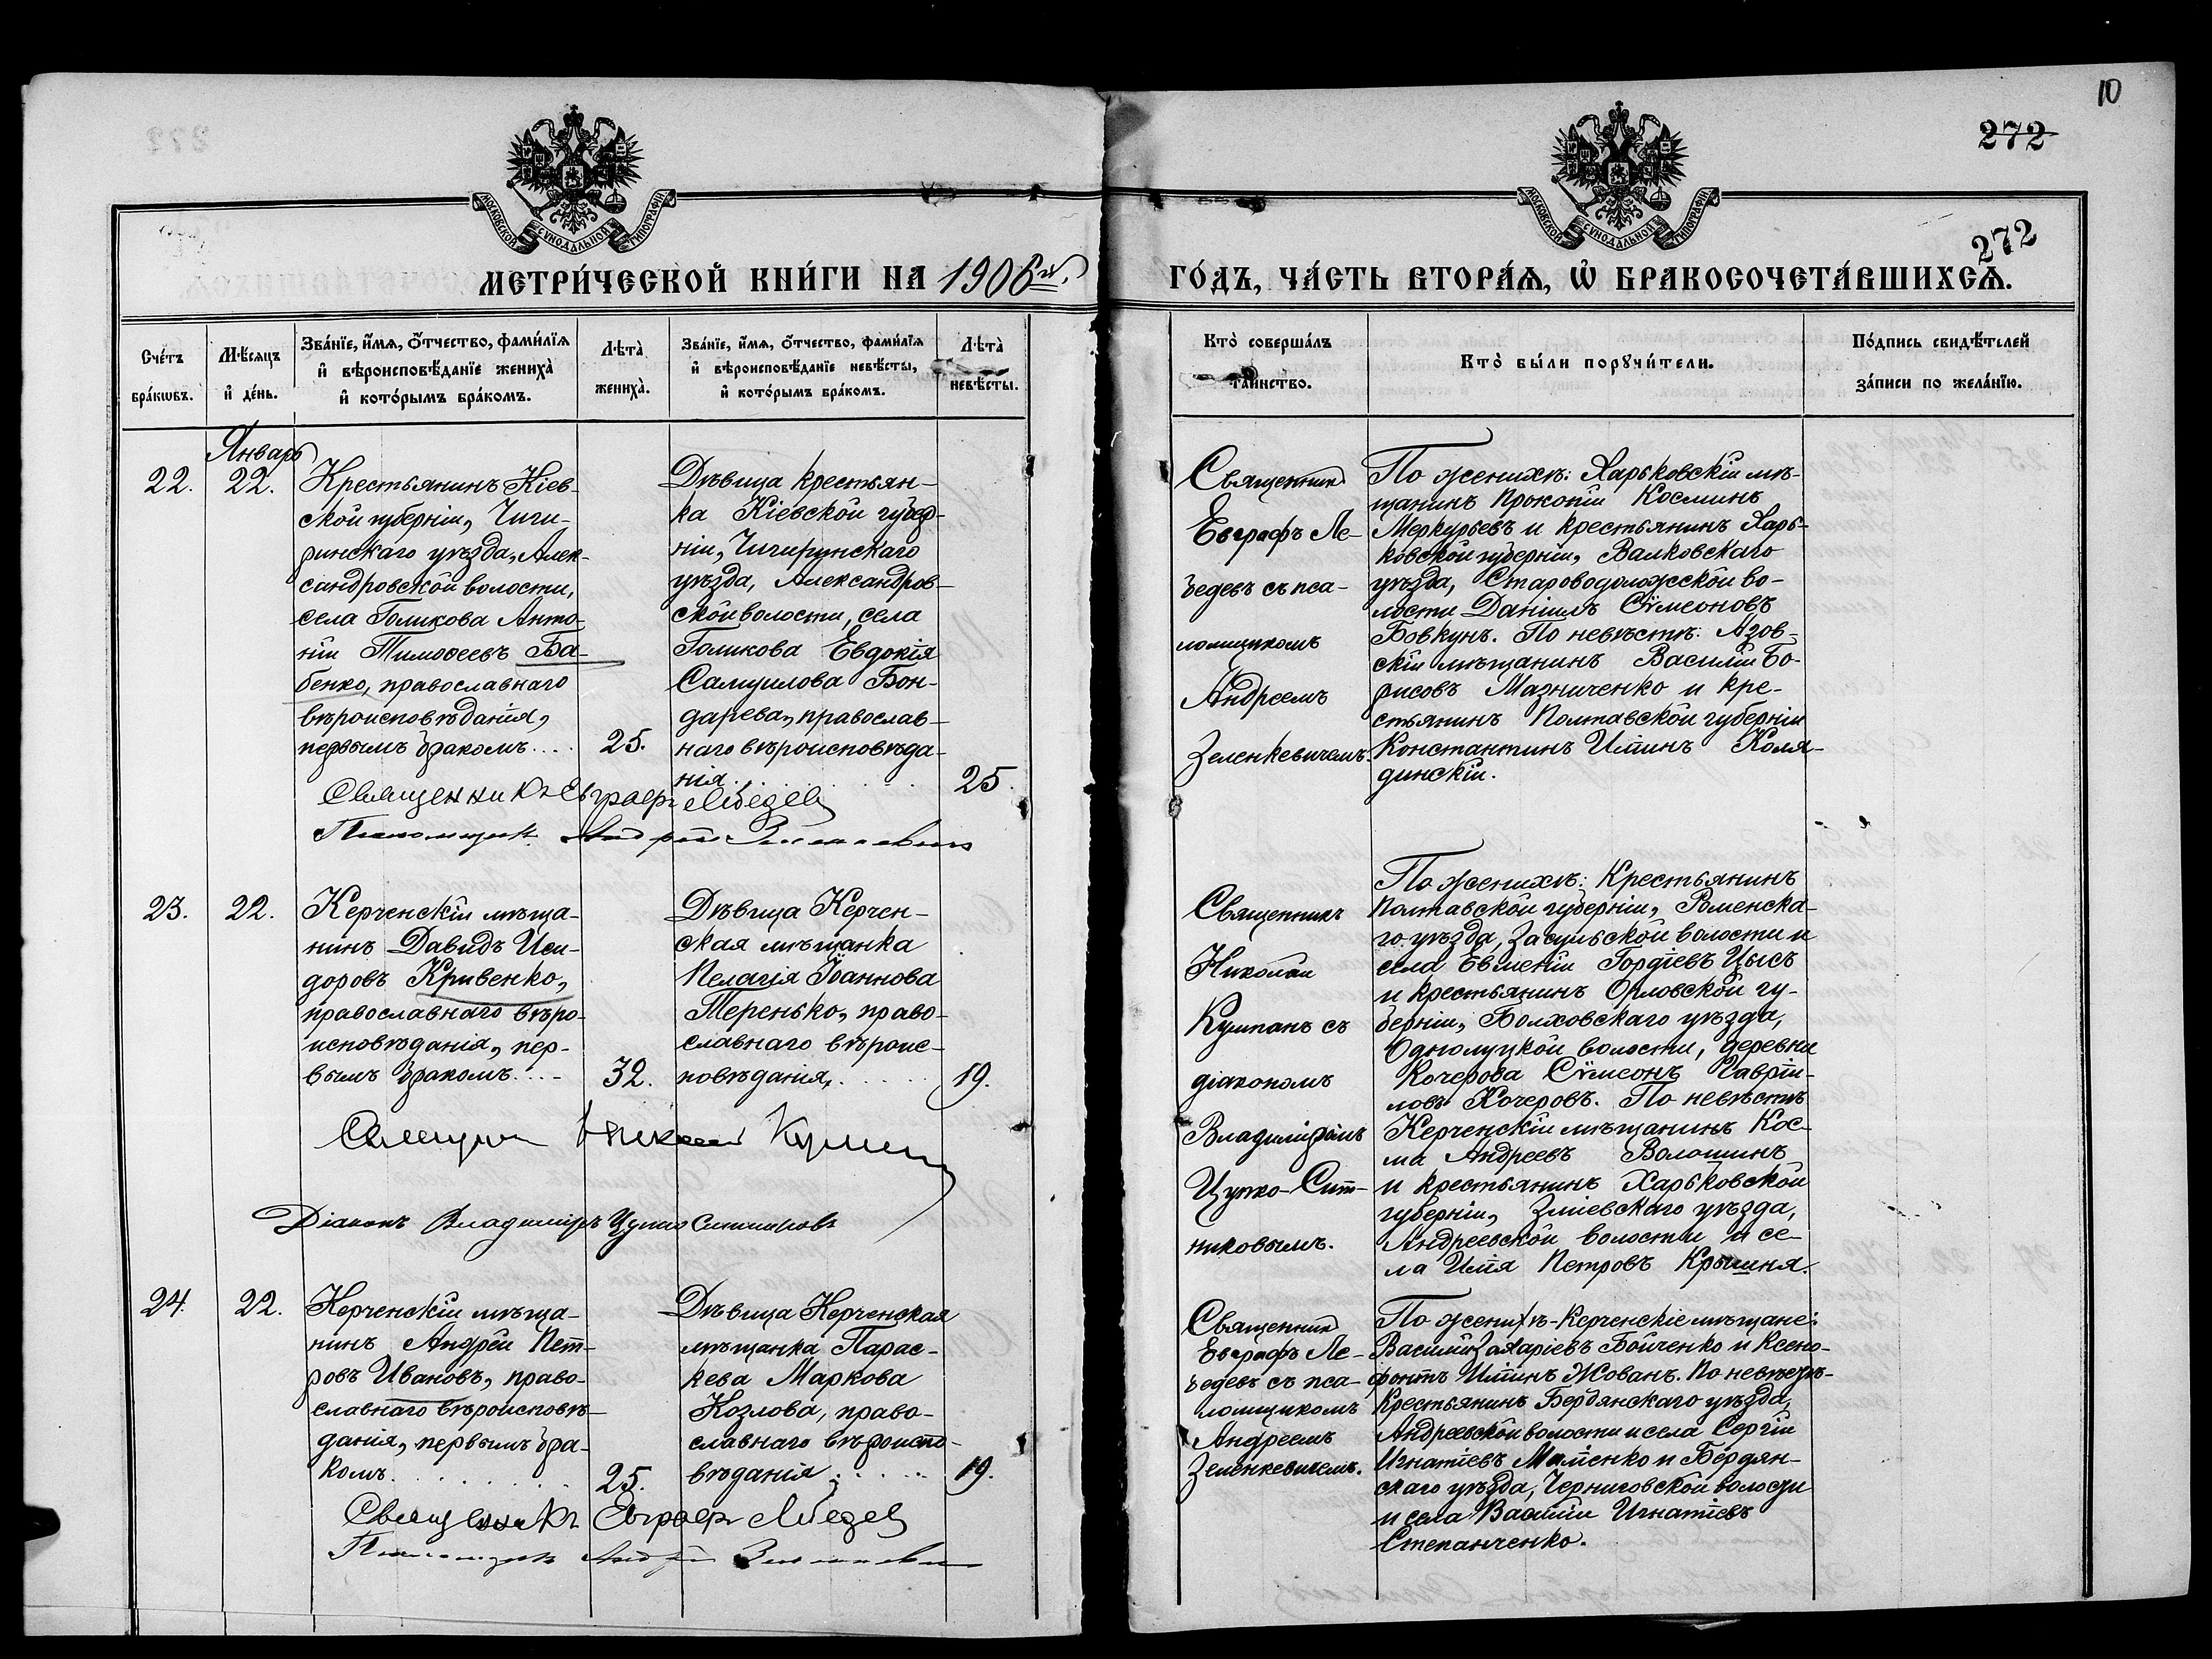 10
272
272
МОСКОВСКОЙ СѴНОДАЛЬНОЙ ТИПОГРАФІИ
МОСКОВСКОЙ СѴНОДАЛЬНОЙ ТИПОГРАФІИ
МЕТРИ́ЧЕСКОЙ КНИ́ГИ НА 1906й.
ГО́ДЪ, ЧА́СТЬ ВТОРА́Ѧ, Ѡ҆ БРАКОСОЧЕТА́ВШИХСѦ.
Сче́тъ бра́кѡвъ.
Мѣ́сяцъ и҆ де́нь.
Зва́нїе, и҆́мѧ, ѻ҆́тчество, фами́лїѧ
и҆ вѣроисповѣ́данїе жениха̀
и҆ кото́рымъ бра́комъ.
Лѣ́та̀ жениха̀.
Зва́нїе, и҆́мѧ, ѻ҆́тчество, фами́лїѧ
и҆ вѣроисповѣ́данїе невѣ́сты,
и҆ кото́рымъ бра́комъ.
Лѣ́та̀ невѣ́сты.
Кто̀ соверша́лъ та́инство.
Кто̀ бы́ли порꙋчи́тели.
По́дпись свидѣ́телей
за́писи по жела́нїю.
Январь
22. 22.
Крестьянинъ Кіев-
ской губерніи, Чиги-
ринскаго уѣзда, Алек-
сандровской волости,
села Голикова Анто-
ній Тимоѳеевъ Ба-
бенко, православнаго
вѣроисповѣданія,
первымъ бракомъ....
25.
Дѣвица крестьян-
ка Кіевской губер-
ніи, Чигиринскаго
уѣзда, Александров-
ской волости, села
Голикова Евдокія
Самуилова Бон-
дарева, православ-
наго вѣроисповѣда-
нія.
25.
Священникъ Евграфъ Лебедев
Псаломщикъ Андрей Зеленкевичъ
Священник
Евграфъ Ле-
бедевъ съ пса-
ломщикомъ
Андреемъ
Зеленкевичемъ.
По женихѣ: Харьковскій мѣ-
щанинъ Прокопій Косминъ
Меркурьевъ и крестьянинъ Харь-
ковской губерніи, Валковскаго
уѣзда, Староводолажской во-
лости Даніилъ Сѵмеоновъ
Бовкунъ. По невѣстѣ: Азов-
скій мѣщанинъ Василій Бо-
рисовъ Мазниченко и кре-
стьянинъ Полтавской губерніи
Константинъ Иліинъ Коля-
динскій.
23. 22.
Керченскій мѣща-
нинъ Давидъ Иси-
доровъ Кривенко,
православнаго вѣро-
исповѣданія, пер-
вымъ бракомъ....
32.
Дѣвица Керчен-
ская мѣщанка
Пелагія Іоаннова
Теренько, право-
славнаго вѣроис-
повѣданія,
19.
Священ Николай Купман
Діаконъ Владиміръ Цупко Ситниковъ
Священникъ
Николай
Купманъ съ
діакономъ
Владиміромъ
Цупко-Сит-
никовымъ.
По женихѣ: Крестьянинъ
Полтавской губерніи, Роменска-
го уѣзда, Засульской волости и
села Евменій Гордіевъ Цысъ
и крестьянинъ Орловской гу-
берніи, Болховскаго уѣзда,
Однолуцкой волости, деревни
Кочерова Сѵмеонъ Гавріи-
ловъ Кочеровъ. По невѣстѣ
Керченскій мѣщанинъ Кос-
ма Андреевъ Волошинъ
и крестьянинъ Харьковской
губерніи, Зміевскаго уѣзда,
Андреевской волости и се-
ла Илія Петровъ Крышня.
24. 22.
Керченскій мѣща-
нинъ Андрей Пет-
ровъ Ивановъ, право-
славнаго вѣроисповѣ-
данія, первымъ бра-
комъ.
25.
Дѣвица Керченская
мѣщанка Парас-
кева Маркова
Козлова, право-
славнаго вѣроиспо-
вѣданія
19.
Священникъ Евграфъ Лебедев
Псаломщикъ Андрей Зеленкевичъ
Священник
Евграфъ Ле-
бедевъ съ пса-
ломщикомъ
Андреемъ
Зеленкевичемъ.
По женихѣ - Керченскіе мѣщане:
Василій Захаріевъ Бойченко и Ксено-
фонтъ Иліинъ Жованъ. По невѣстѣ-
Крестьянинъ Бердянскаго уѣзда,
Андреевской волости и села Сергій
Игнатіевъ и Бердян-
скаго уѣзда, Черниговской волости
и села Василій Игнатіевъ
Степанченко.